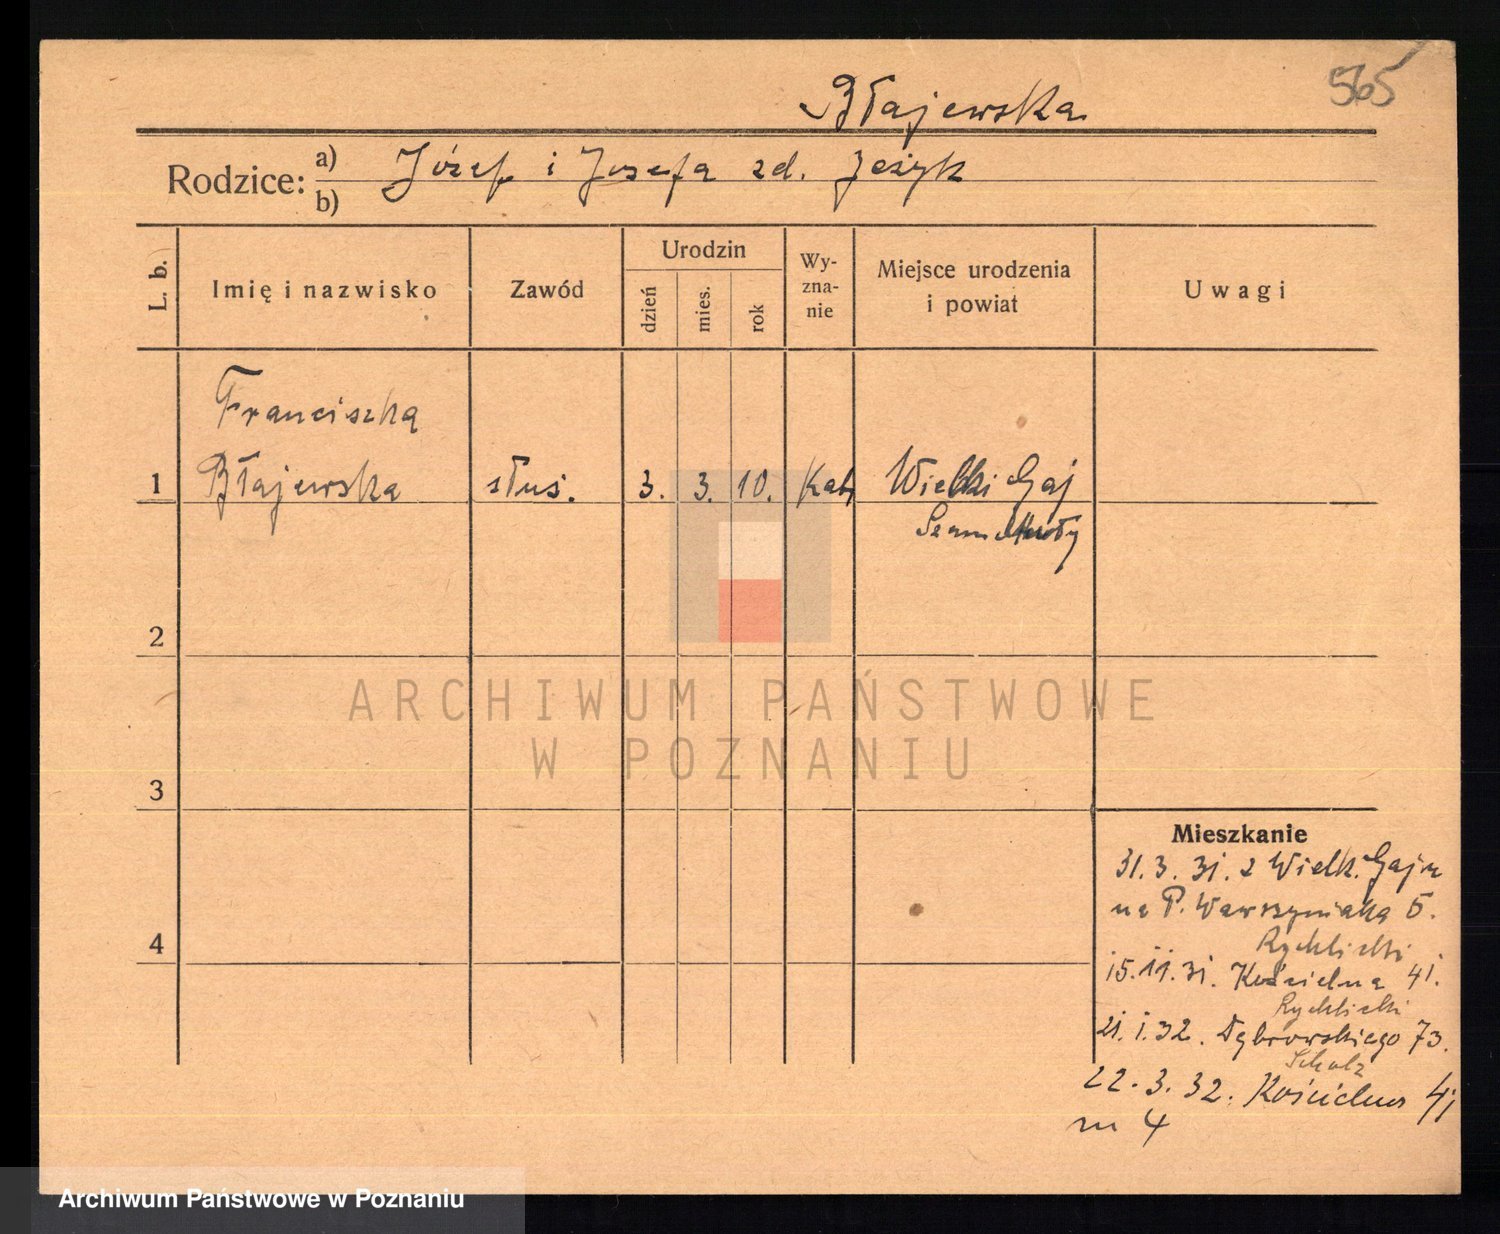 565
Błajewska
Rodzice: a) Józef i Józefa zd. Jeżyk
b)
L. b.
Imię i nazwisko
Zawód
Urodzin
dzień
mies.
rok
Wy-
zna-
nie
Miejsce urodzenia
i powiat
Uwagi
Franciszka
1 Błajewska służ. 3. 3. 10. Kat. Wielki Gaj
Szamotuły
2
3
4
Mieszkanie
31.3.31. z Wielk. Gaju
na P. Wawrzyniaka 5.
Rychlicki
15.11.31. Kościelna 41.
Rychlicki
21.1.32. Dąbrowskiego 73.
Scholz
22.3.32. Kościelna 41
m 4
ARCHIWUM PAŃSTWOWE
W POZNANIU
Archiwum Państwowe w Poznaniu